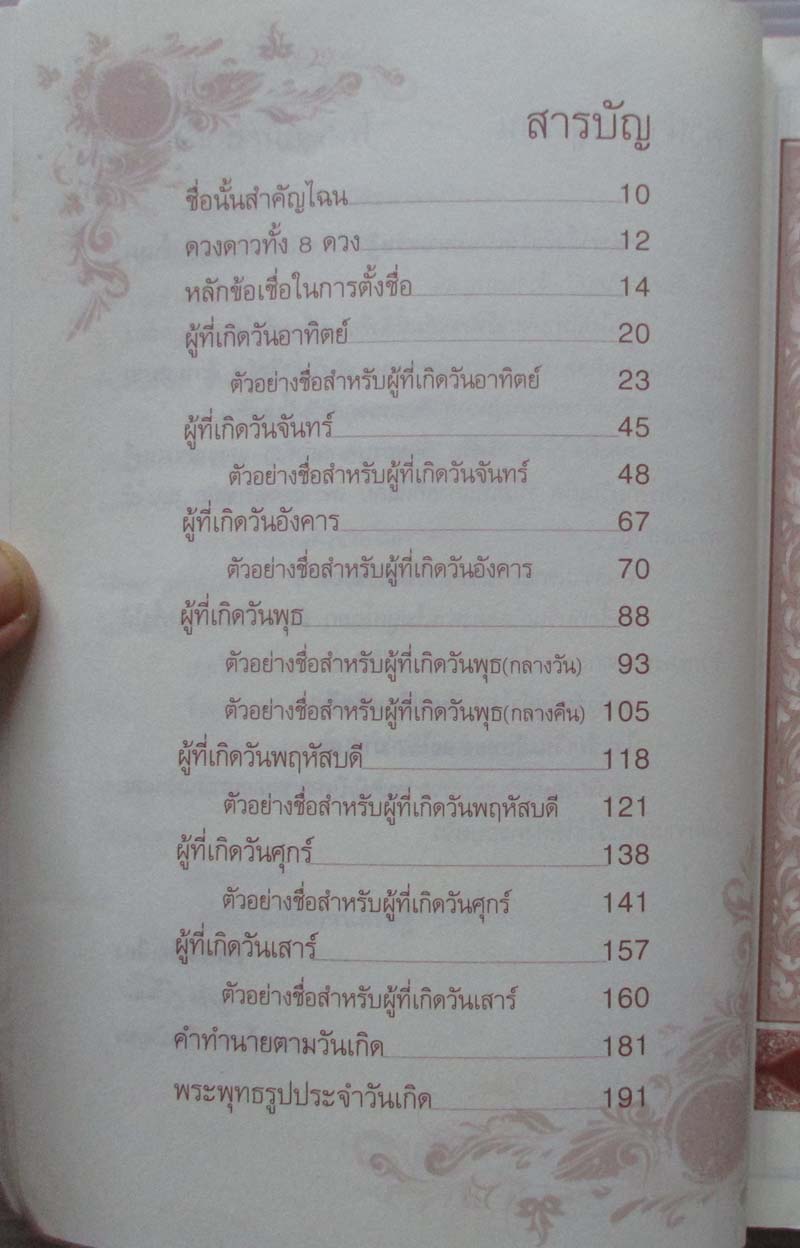 สารบัญ
ชื่อนั้นสำคัญไฉน 10
ดวงดาวทั้ง 8 ดวง 12
หลักข้อเชื่อในการตั้งชื่อ 14
ผู้ที่เกิดวันอาทิตย์ 20
ตัวอย่างชื่อสำหรับผู้ที่เกิดวันอาทิตย์ 23
ผู้ที่เกิดวันจันทร์ 45
ตัวอย่างชื่อสำหรับผู้ที่เกิดวันจันทร์ 48
ผู้ที่เกิดวันอังคาร 67
ตัวอย่างชื่อสำหรับผู้ที่เกิดวันอังคาร 70
ผู้ที่เกิดวันพุธ 88
ตัวอย่างชื่อสำหรับผู้ที่เกิดวันพุธ(กลางวัน) 93
ตัวอย่างชื่อสำหรับผู้ที่เกิดวันพุธ(กลางคืน) 105
ผู้ที่เกิดวันพฤหัสบดี 118
ตัวอย่างชื่อสำหรับผู้ที่เกิดวันพฤหัสบดี 121
ผู้ที่เกิดวันศุกร์ 138
ตัวอย่างชื่อสำหรับผู้ที่เกิดวันศุกร์ 141
ผู้ที่เกิดวันเสาร์ 157
ตัวอย่างชื่อสำหรับผู้ที่เกิดวันเสาร์ 160
คำทำนายตามวันเกิด 181
พระพุทธรูปประจำวันเกิด 191